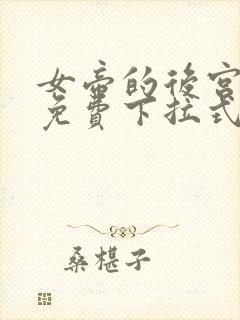 女帝的後宮
免費下拉式
桑椹子